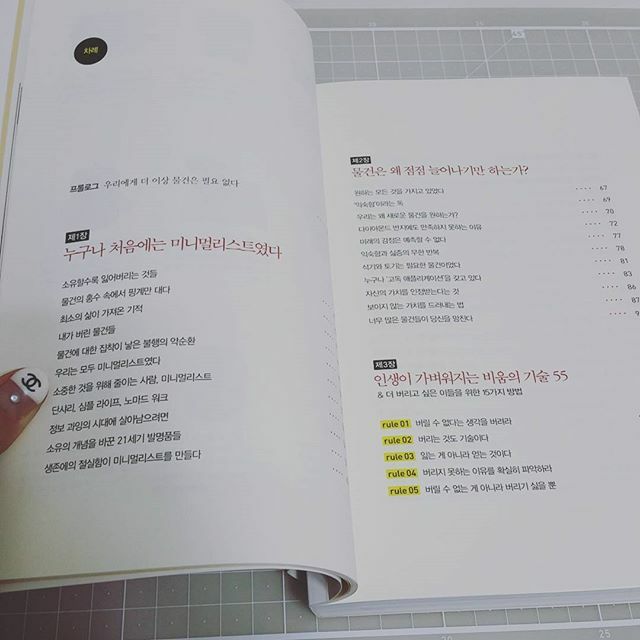 차례
프롤로그 우리에게 더 이상 물건은 필요 없다
제1장
누구나 처음에는 미니멀리스트였다
소유할수록 잃어버리는 것들
물건의 홍수 속에서 핑계만 대다
최소의 삶이 가져온 기적
내가 버린 물건들
물건에 대한 집착이 낳은 불행의 악순환
우리는 모두 미니멀리스트였다
소중한 것을 위해 줄이는 사람, 미니멀리스트
단샤리, 심플 라이프, 노마드 워크
정보 과잉의 시대에 살아남으려면
소유의 개념을 바꾼 21세기 발명품들
생존에의 절실함이 미니멀리스트를 만들다
제2장
물건은 왜 점점 늘어나기만 하는가?
원하는 모든 것을 가지고 있었다 •••• 67
'익숙함'이라는 독 •••• 69
우리는 왜 새로운 물건을 원하는가? •••• 70
다이아몬드 반지에도 만족하지 못하는 이유 •••• 72
미래의 감정은 예측할 수 없다 •••• 77
익숙함과 싫증의 무한 반복 •••• 78
석기와 토기는 필요한 물건이었다 •••• 81
누구나 '고독 애플리케이션'을 갖고 있다 •••• 83
자신의 가치를 인정받는다는 것 •••• 86
보이지 않는 가치를 드러내는 법 •••• 87
너무 많은 물건들이 당신을 망친다 ••••
제3장
인생이 가벼워지는 비움의 기술 55
& 더 버리고 싶은 이들을 위한 15가지 방법
rule 01 버릴 수 없다는 생각을 버려라
rule 02 버리는 것도 기술이다
rule 03 잃는 게 아니라 얻는 것이다
rule 04 버리지 못하는 이유를 확실히 파악하라
rule 05 버릴 수 없는 게 아니라 버리기 싫을 뿐
30
45°
25